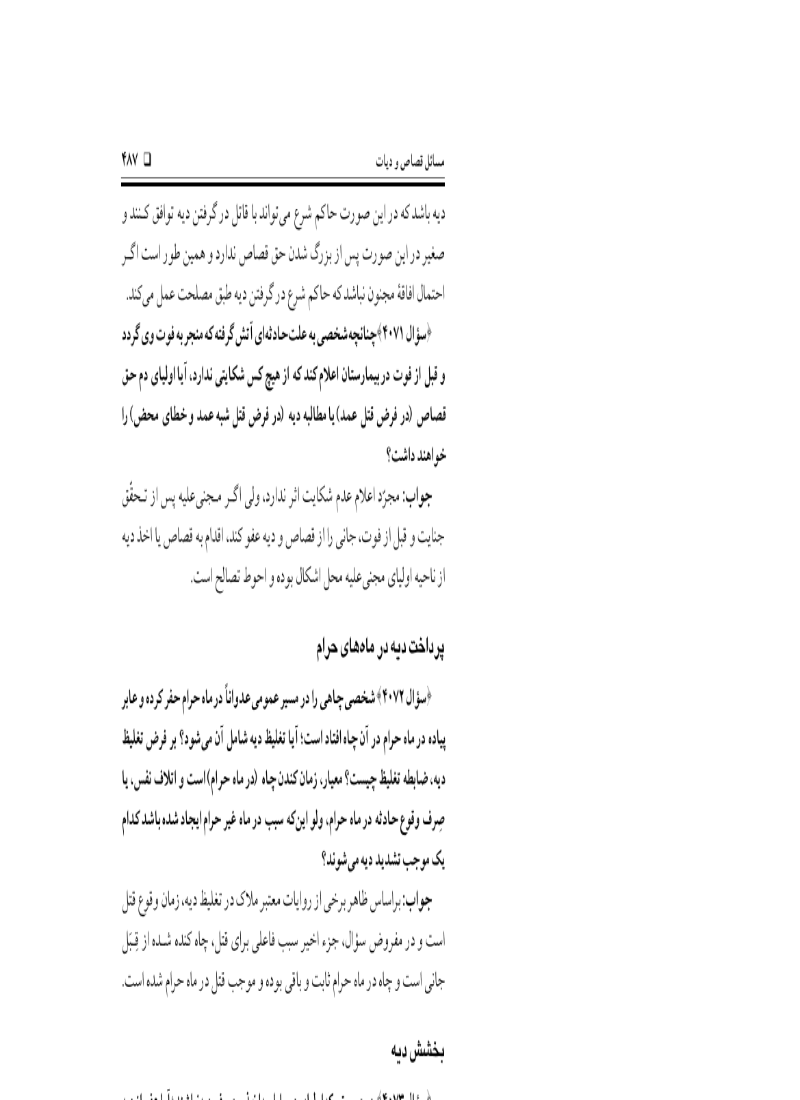 مسائل قصاص و دیات ❑ ۴۸۷
دیه باشد که در این صورت حاکم شرع می‌تواند با قاتل در گرفتن دیه توافق کنند و
صغیر در این صورت پس از بزرگ شدن حق قصاص ندارد و همین طور است اگر
احتمال افاقهٔ مجنون نباشد که حاکم شرع در گرفتن دیه طبق مصلحت عمل می‌کند.
﴿سؤال ۴۰۷۱﴾ چنانچه شخصی به علت حادثه‌ای آتش گرفته که منجر به فوت وی گردد
و قبل از فوت در بیمارستان اعلام کند که از هیچ کس شکایتی ندارد، آیا اولیای دم حق
قصاص (در فرض قتل عمد) یا مطالبه دیه (در فرض قتل شبه عمد و خطای محض) را
خواهند داشت؟
جواب: مجرّد اعلام عدم شکایت اثر ندارد، ولی اگر مجنی‌علیه پس از تحقُّق
جنایت و قبل از فوت، جانی را از قصاص و دیه عفو کند، اقدام به قصاص یا اخذ دیه
از ناحیه اولیای مجنی‌علیه محل اشکال بوده و احوط تصالح است.
پرداخت دیه در ماه‌های حرام
﴿سؤال ۴۰۷۲﴾ شخصی چاهی را در مسیر عمومی عدواناً در ماه حرام حفر کرده و عابر
پیاده در ماه حرام در آن چاه افتاد است؛ آیا تغلیظ دیه شامل آن می‌شود؟ بر فرض تغلیظ
دیه، ضابطه تغلیظ چیست؟ معیار، زمان کندن چاه (در ماه حرام) است و اتلاف نفس، یا
صِرف وقوع حادثه در ماه حرام، ولو این‌که سبب در ماه غیر حرام ایجاد شده باشد کدام
یک موجب تشدید دیه می‌شوند؟
جواب: براساس ظاهر برخی از روایات معتبر ملاک در تغلیظ دیه، زمان وقوع قتل
است و در مفروض سؤال، جزء اخیر سبب فاعلی برای قتل، چاه کنده شده از قِبَل
جانی است و چاه در ماه حرام ثابت و باقی بوده و موجب قتل در ماه حرام شده است.
بخشش دیه
﴿سؤال ۴۰۷۳﴾